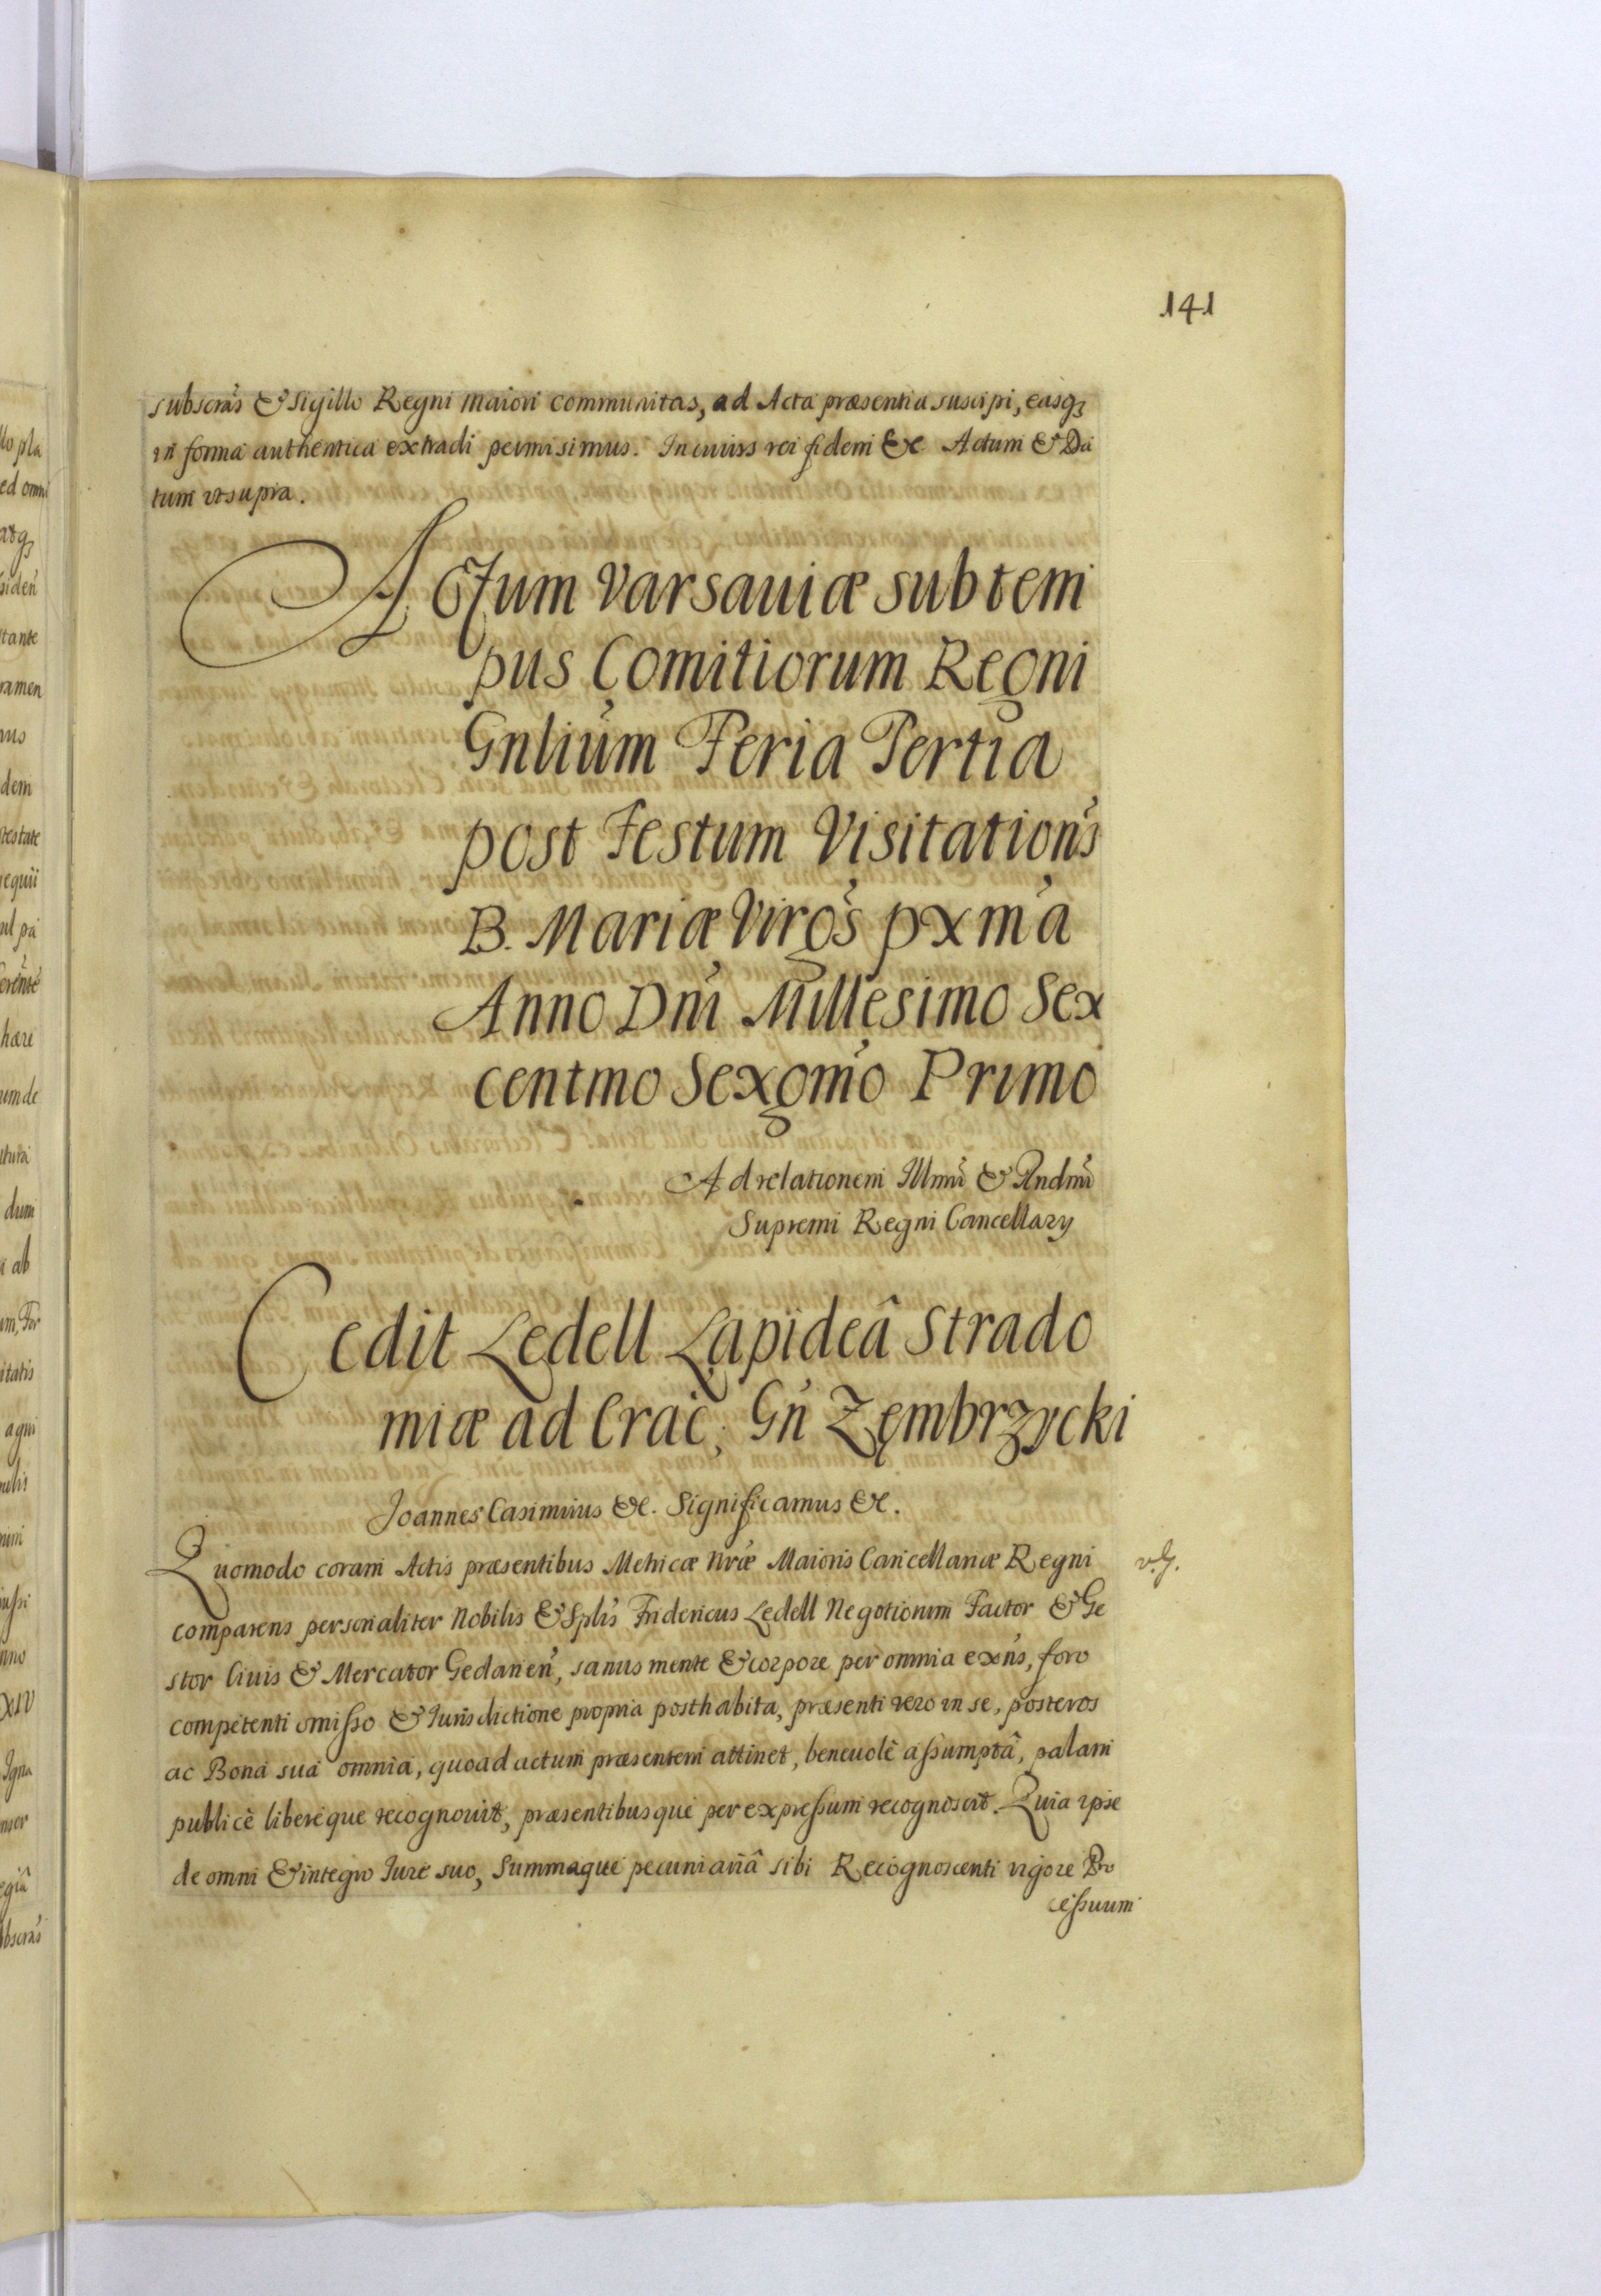 141
subscrás & Sigillo Regni maiori communitas, ad Acta præsentia suscipi, easq₃
in forma authentica extradi permisimus. In cuius rei fidem &c Actum & Da
tum vt supra.
Actum Varsauiæ sub tem
pus Comitiorum Regni
Gnlium Feria Tertia
post Festum Visitationis
B. Mariæ Virgs pxma
Anno Dni Millesimo Sex
centmo Sexgmo Primo
Ad relationem Illmi & Rndmi
Supremi Regni Cancellary
Cedit Ledell Lapideâ Strado
miæ ad Crac; Gn Zęmbrzycki
Joannes Casimirus &c. Significamus &c.
Quomodo coram Actis præsentibus Metricæ Nræ Maioris Cancellariæ Regni
comparens personaliter Nobilis & Splis Fridericus Ledell Negotiorum Factor & Ge
stor Ciuis & Mercator Gedanen, sanus mente & corpore per omnia exns, foro
competenti omisso & Iurisdictione propria posthabita, præsenti vero in se, posteros
ac Bona sua omnia, quoad actum præsentem attinet, beneuolè assumptâ, palam
publicè libereque recognouit, præsentibusque per expressum recognoscit. Quia ipse
de omni & integro Iure suo, Summaque pecuniariâ sibi Recognoscenti vigore Pro
cessuum